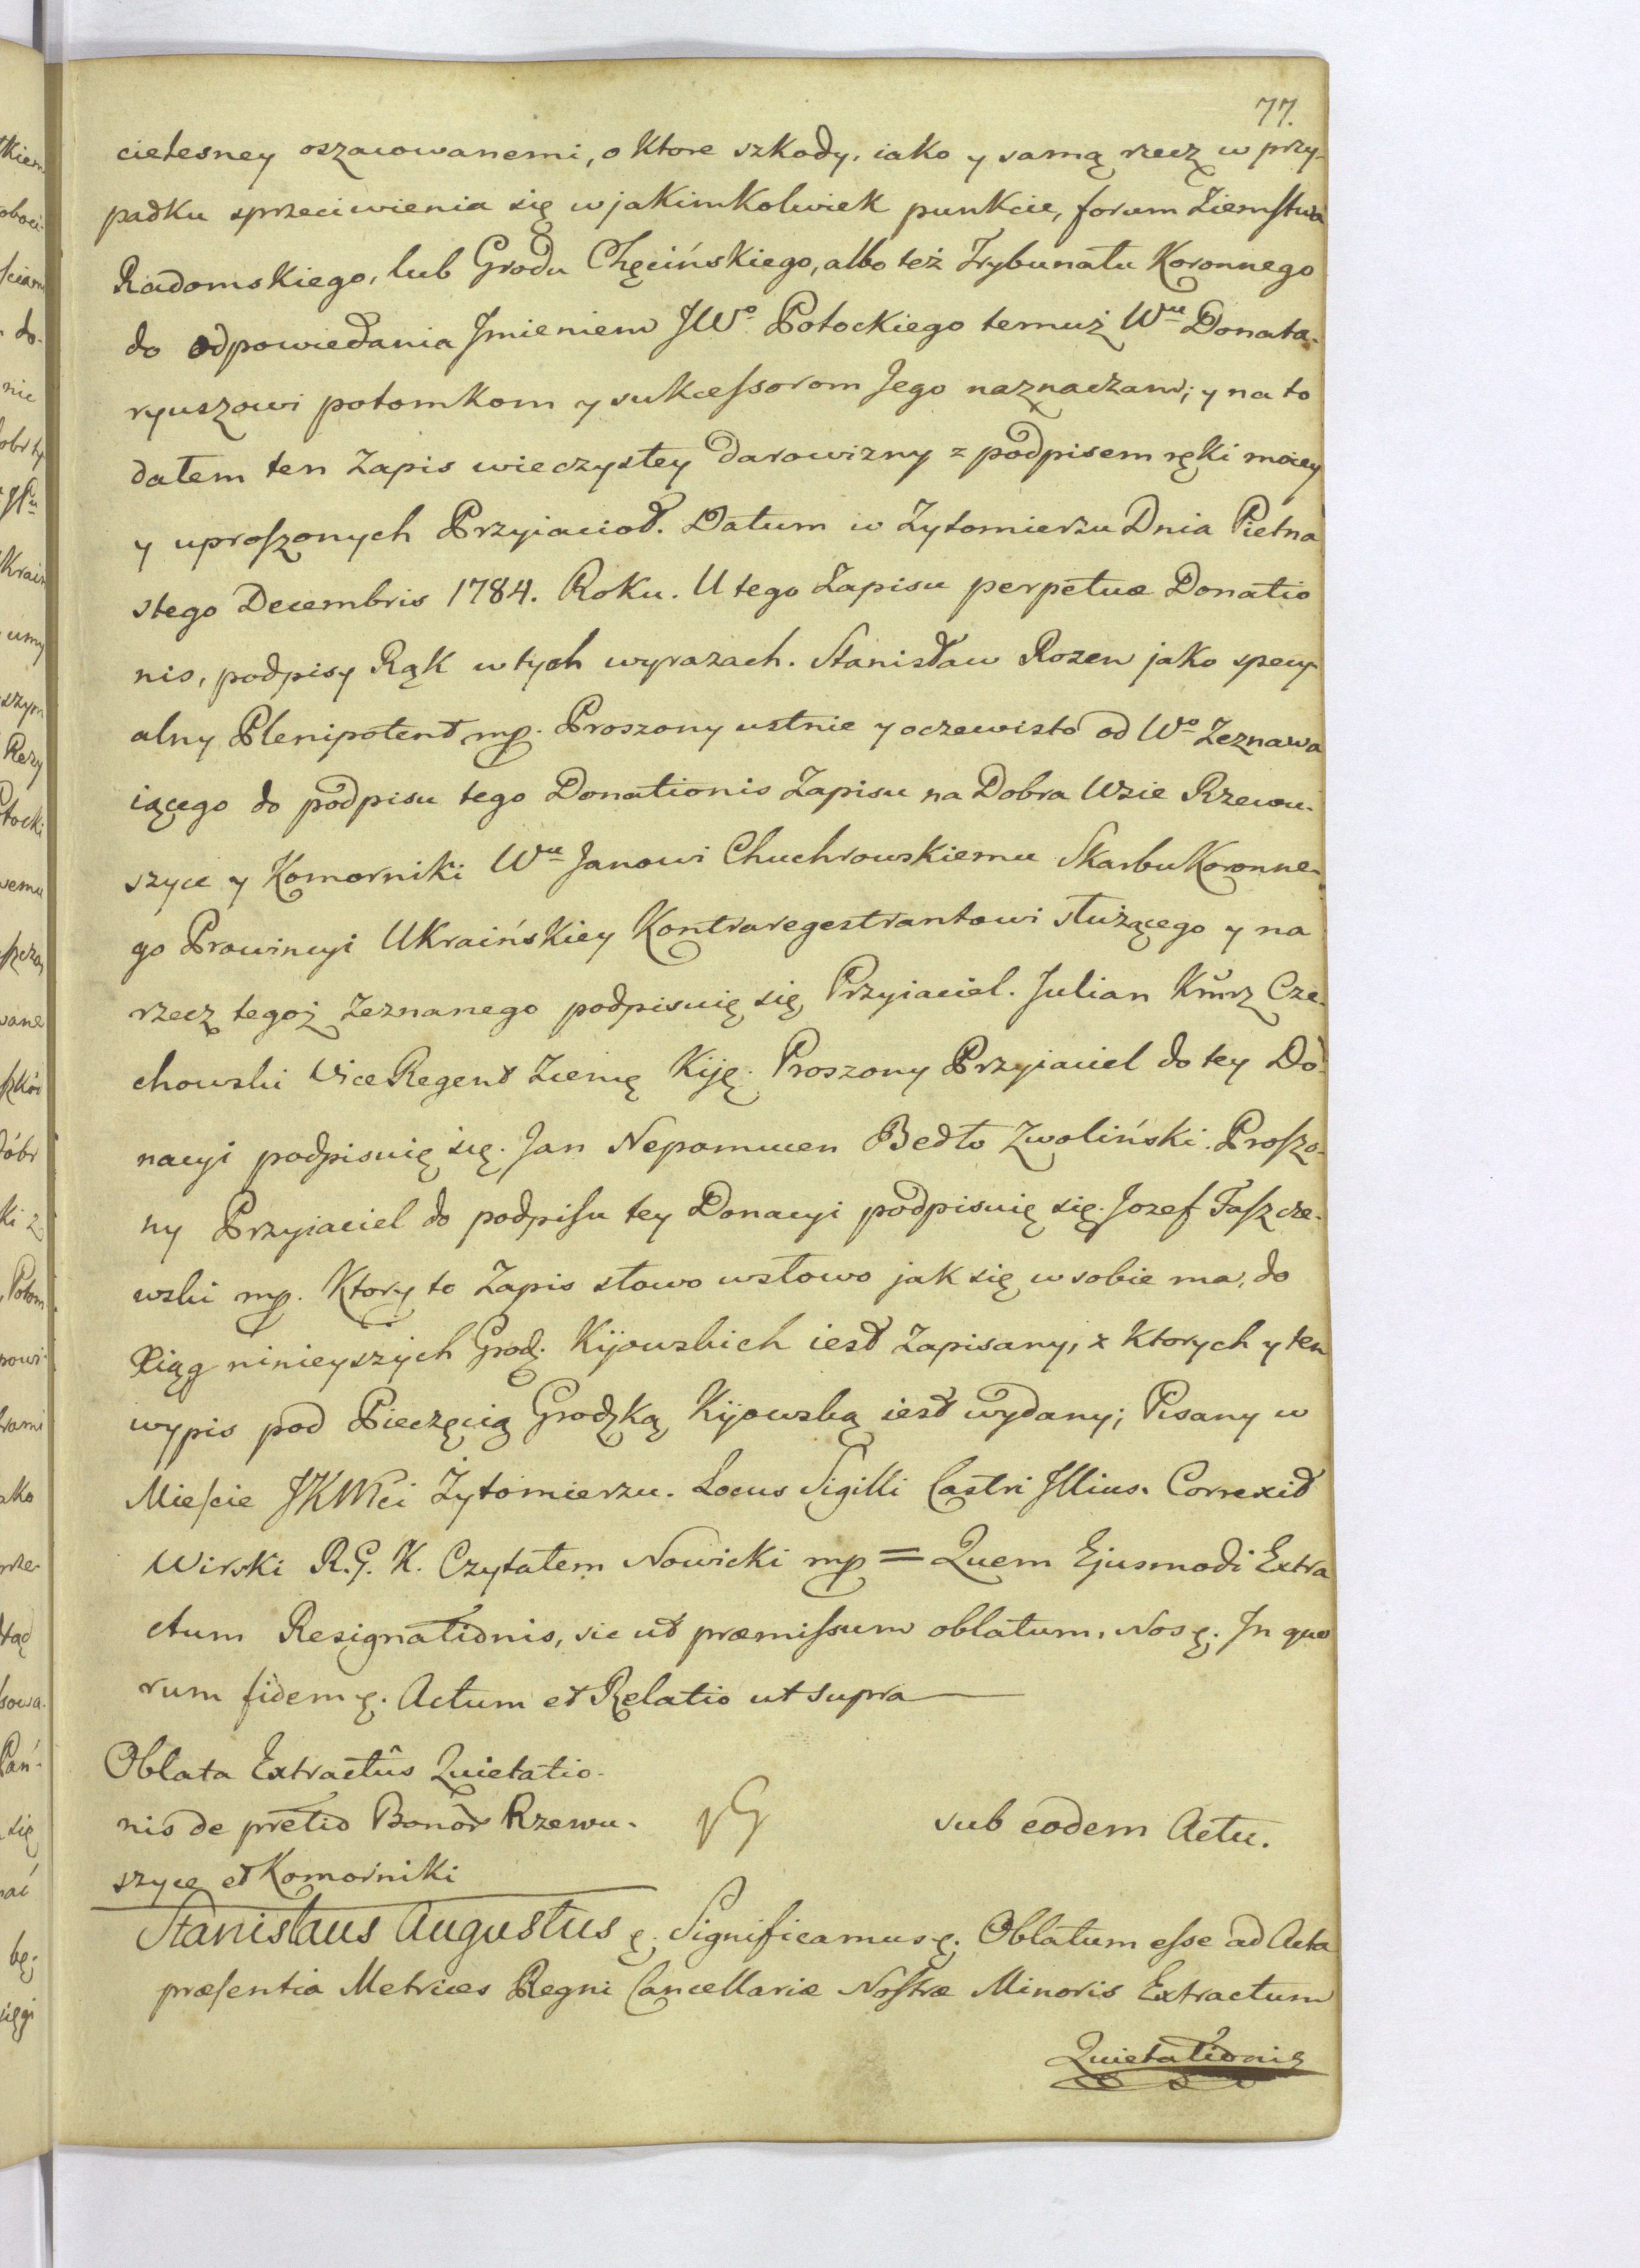 77.
cielesney oszacowanemi, o ktore szkody, iako y samą rzecz w przy-
padku sprzeciwienia się w jakimkolwiek punkcie, forum Ziemstwa
Radomskiego, lub Grodu Chęcińskiego, albo też Trybunału Koronnego
do odpowiedania Jmieniem JWº Potockiego temuż Wmu Donata-
ryuszowi potomkom y sukcessorom Jego naznaczam; y na to
dałem ten Zapis wieczystey darowizny z podpisem ręki moiey
y uproszonych Przyiacioł. Datum w Zytomierzu Dnia Pietna
stego Decembris 1784. Roku. U tego Zapisu perpetuæ Donatio
nis, podpisy Rąk w tych wyrazach. Stanisław Rozen jako specy-
alny Plenipotent mp. Proszony ustnie y oczewisto od Wº Zeznawa
iącego do podpisu tego Donationis Zapisu na Dobra Wsie Rzewu-
szyce y Komorniki Wmu Janowi Chuchrowskiemu Skarbu Koronne-
go Prowincyi Ukraińskiey Kontraregestrantowi służącego y na
rzecz tegoż Zeznanego podpisuię się Przyiaciel. Julian Kmrz Cze-
chowski Vice Regent Ziemę Kiję. Proszony Przyiaciel do tey Do-
nacyi podpisuię się. Jan Nepomucen Bedło Zwoliński. Proszo-
ny Przyiaciel do podpisu tey Donacyi podpisuię się. Jozef Taszcze-
wski mp. Ktory to Zapis słowo w słowo jak się w sobie ma, do
Xiąg ninieyszych Grodz. Kijowskich iest Zapisany, z Ktorych y ten
wypis pod Pieczęcią Grodzką Kijowską iest wydany; Pisany w
Mieście JKMCi Żytomierzu. Locus Sigilli Castri Jllius. Correxit
Wirski R. G. K. Czytałem Nowicki mp = Quem Ejusmodi Extra
ctum Resignationis, sic ut præmissum oblatum, Nos ę. Jn quo
rum fidem ę. Actum et Relatio ut supra
Oblata Extractûs Quietatio-
nis de pretio Bonor Rzewu-
szyce et Komorniki
sub eodem Actu.
Stanislaus Augustus ę. Significamus ę. Oblatum esse ad Acta
præsentia Metrices Regni Cancellariæ Nostræ Minoris Extractum
Quietationis